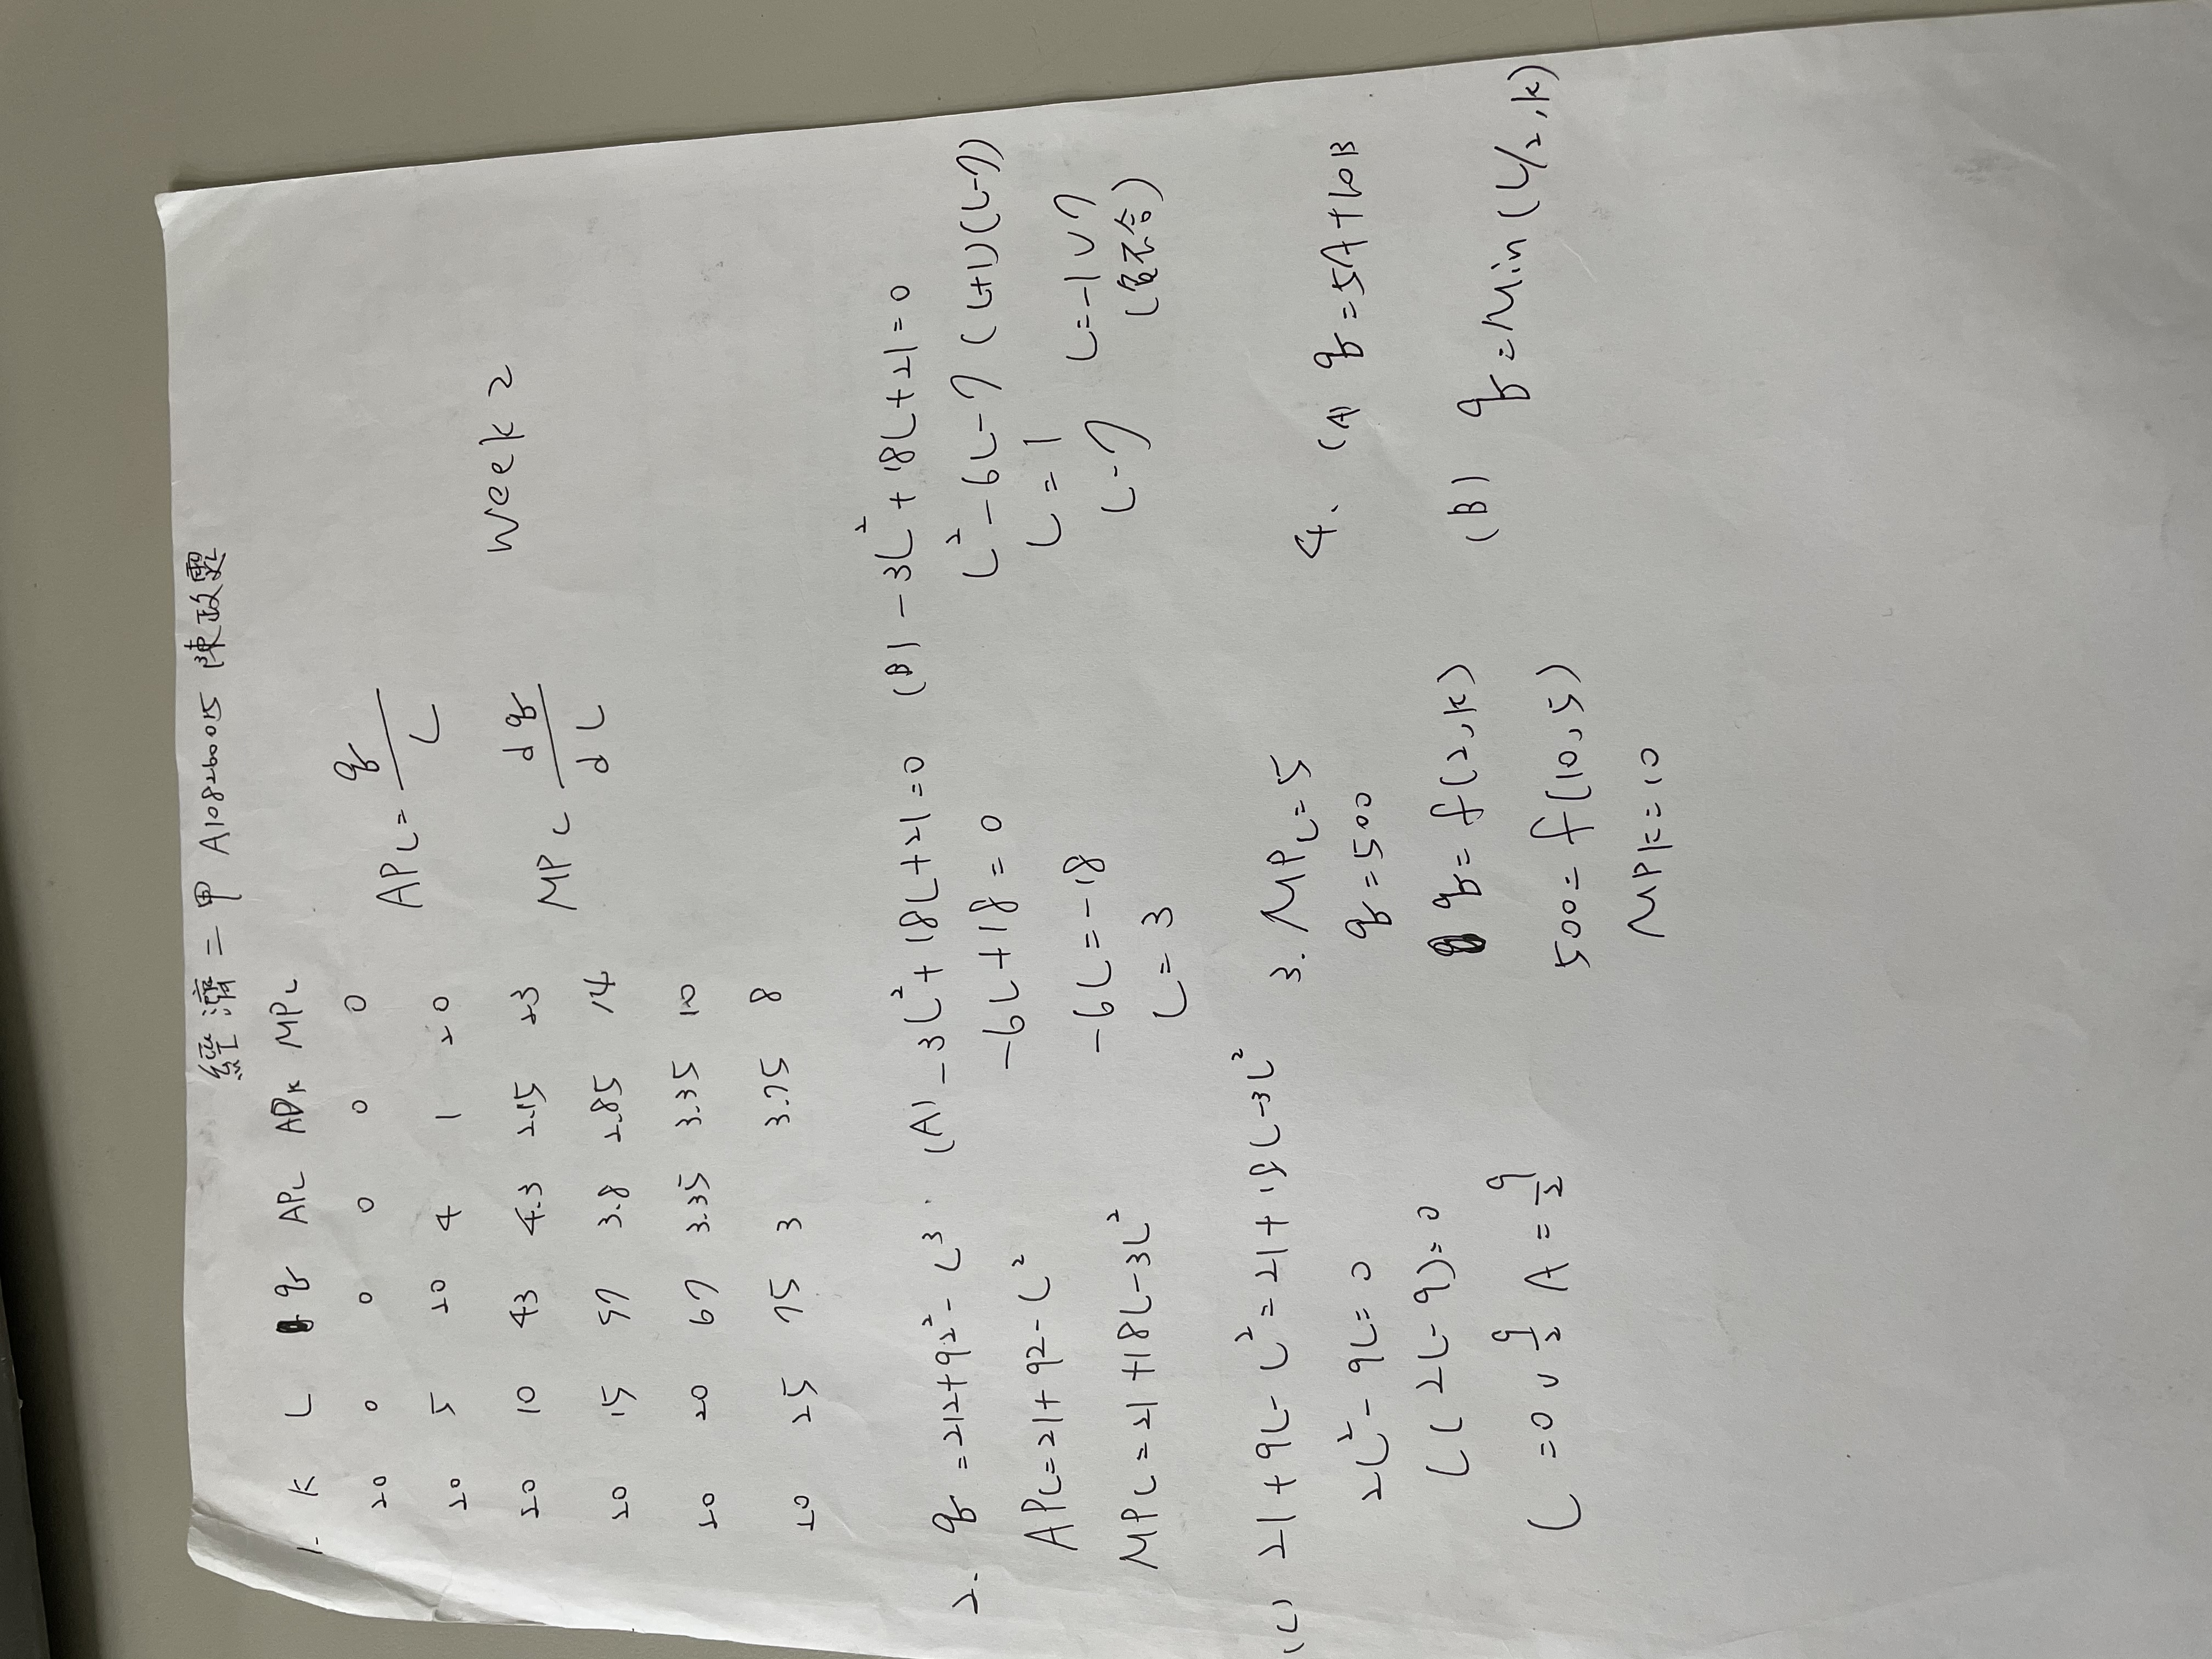 經濟二甲 A108260015 陳政霆
1. K L q APL APK MPL
20 0 0 0 0 0
20 5 20 4 1 20
20 10 43 4.3 2.15 23
20 15 57 3.8 2.85 14
20 20 67 3.35 3.35 10
20 25 75 3 3.75 8
APL = q / L
MPL dq / dL
Week 2
2. q = 212 + 92² - L³
APL = 21 + 92 - L²
MPL = 21 + 18L - 3L²
(A) -3L² + 18L + 21 = 0
-6L + 18 = 0
-6L = -18
L = 3
(B) -3L² + 18L + 21 = 0
L² - 6L - 7 (L+1)(L-7)
L = 1
L - 7
L = -1 ∨ 7
(負不合)
(C) 21 + 9L - L² = 21 + 18L - 3L²
2L² - 9L = 0
L(2L - 9) = 0
L = 0 ∨ 9/2 A = 9/2
3. MPL = 5
q = 500
q = f(2, K)
500 = f(10, 5)
MPK = 10
4. (A) q = 5A + 10B
(B) q = Min(L/2, K)